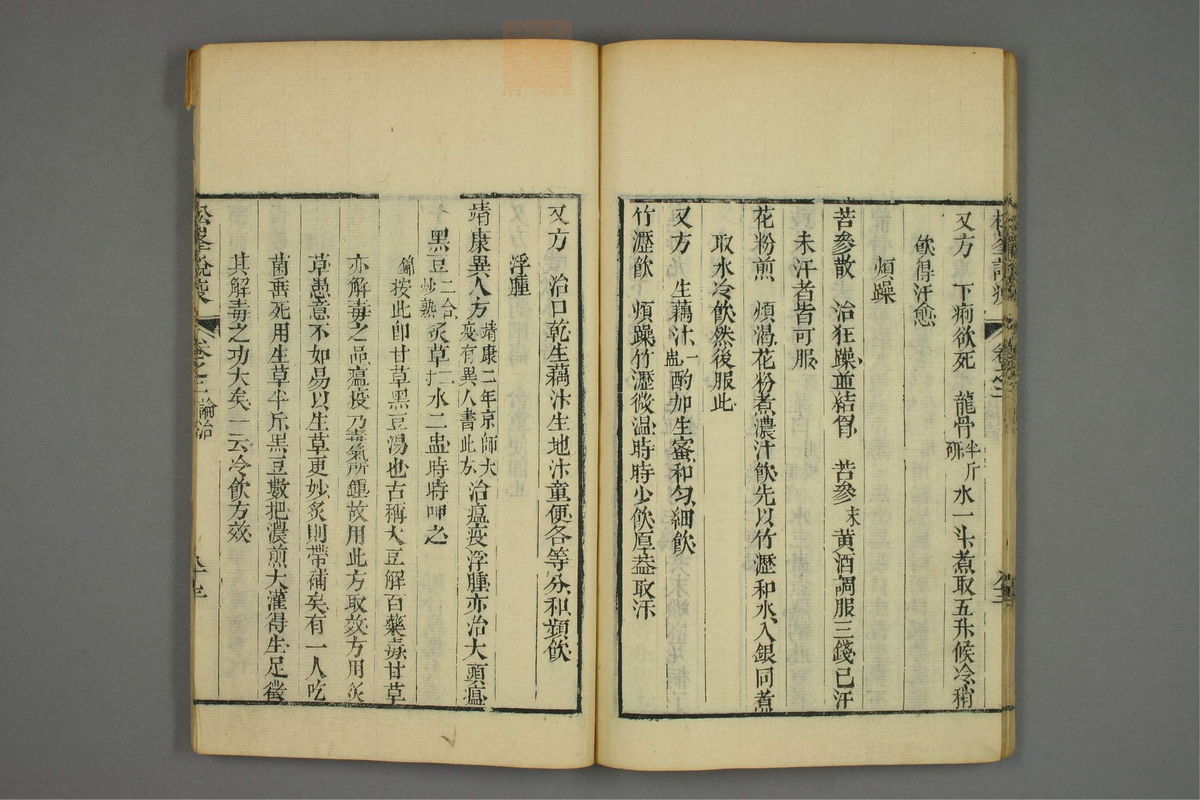 松峯說疫 卷之二
又方 下痢欲死 龍骨半斤研 水一斗煮取五升候冷稍
飲得汗愈
煩躁
苦參散 治狂躁並結胷 苦參末 黃酒調服三錢已汗
未汗者皆可服
花粉煎 煩渴花粉煮濃汁飲先以竹瀝和水入銀同煮
取水冷飲然後服此
又方 生藕汁一盅酌加生蜜和勻細飲
竹瀝飲 煩躁竹瀝微温時時少飲厚蓋取汗
又方 治口乾生藕汁生地汁童便各等分和頻飲
浮腫
靖康異人方 靖康二年京師大疫有異人書此方 治瘟疫浮腫亦治大頭瘟
黑豆二合炒熟 炙草二寸 水二盅時時呷之
錦按此卽甘草黑豆湯也古稱大豆解百藥毒甘草
亦解毒之品瘟疫乃毒氣所鍾故用此方取效方用炙
草愚意不如易以生草更妙炙則帶補矣有一人吃
菌垂死用生草半斤黑豆數把濃煎大灌得生足徵
其解毒之功大矣一云冷飲方效
松峯說疫 卷之二 論治